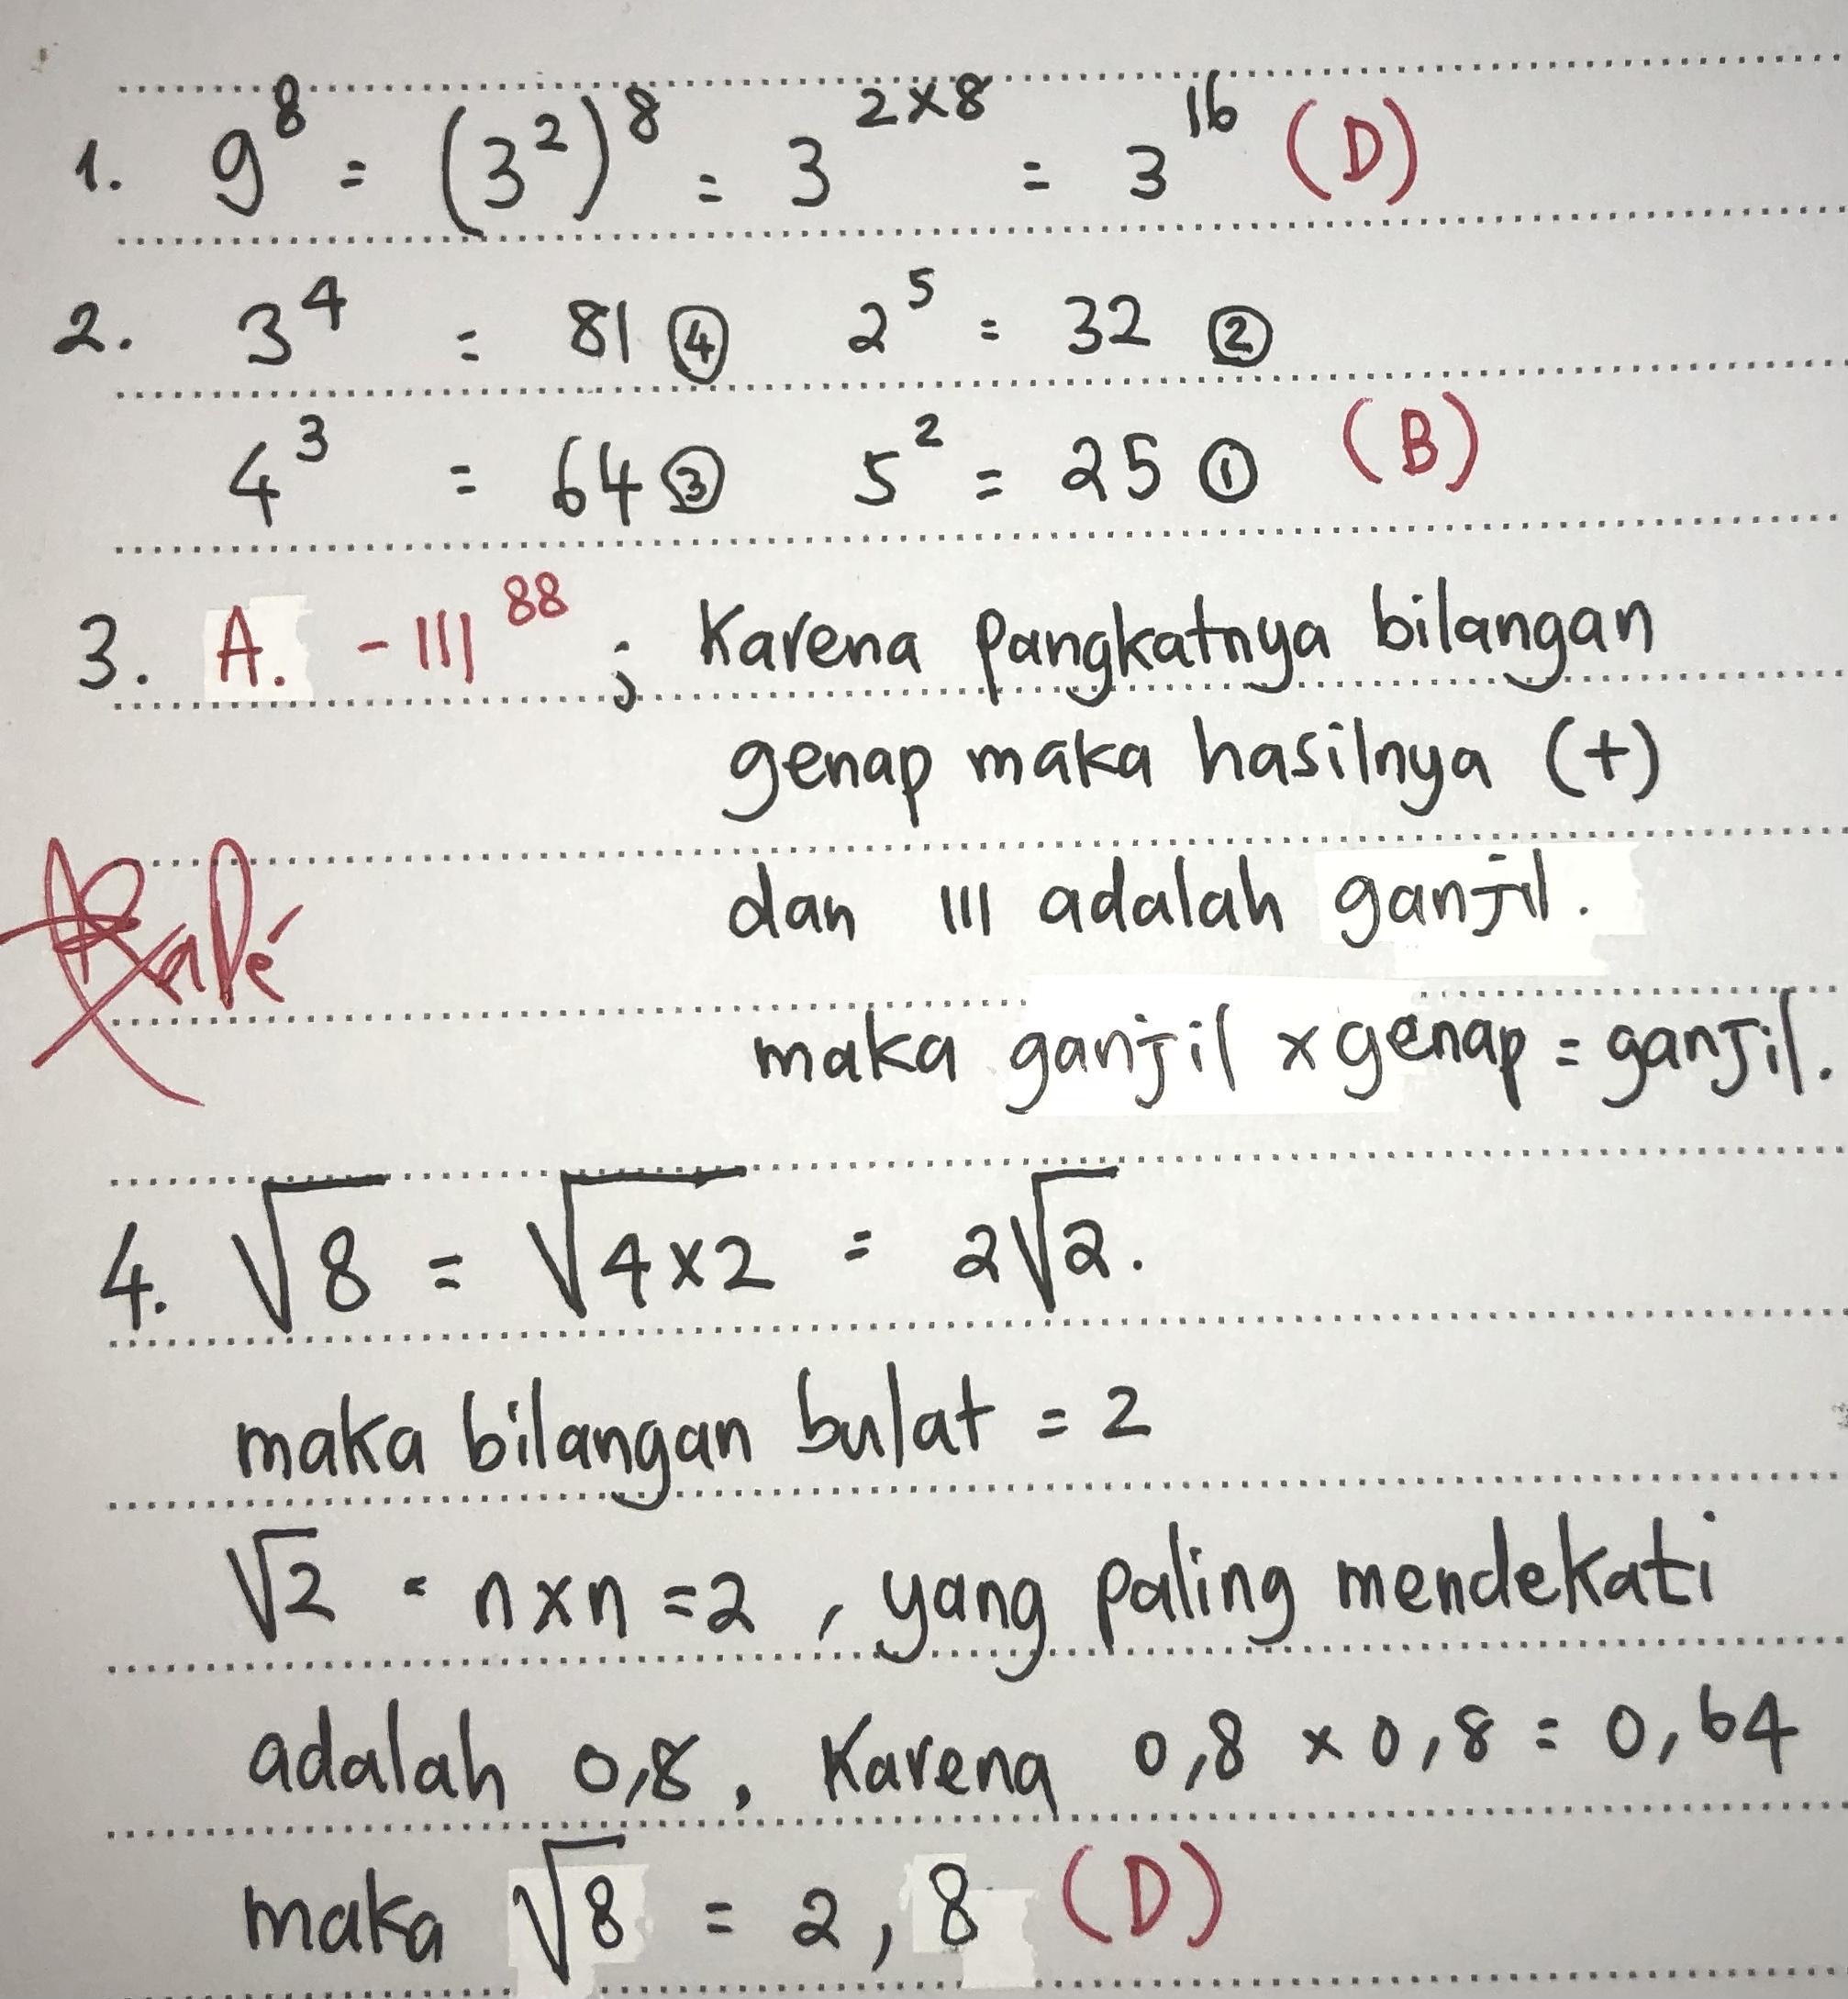 1. 9⁸ = (3²)⁸ = 3²ˣ⁸ = 3¹⁶ (D)
2. 3⁴ = 81 ④ 2⁵ = 32 ②
4³ = 64 ③ 5² = 25 ① (B)
3. A. -111⁸⁸ ; Karena pangkatnya bilangan
genap maka hasilnya (+)
dan 111 adalah ganjil.
maka ganjil x genap = ganjil.
4. √8 = √4x2 = 2√2.
maka bilangan bulat = 2
√2 = nxn = 2, yang paling mendekati
adalah 0,8, Karena 0,8 x 0,8 = 0,64
maka √8 = 2,8 (D)